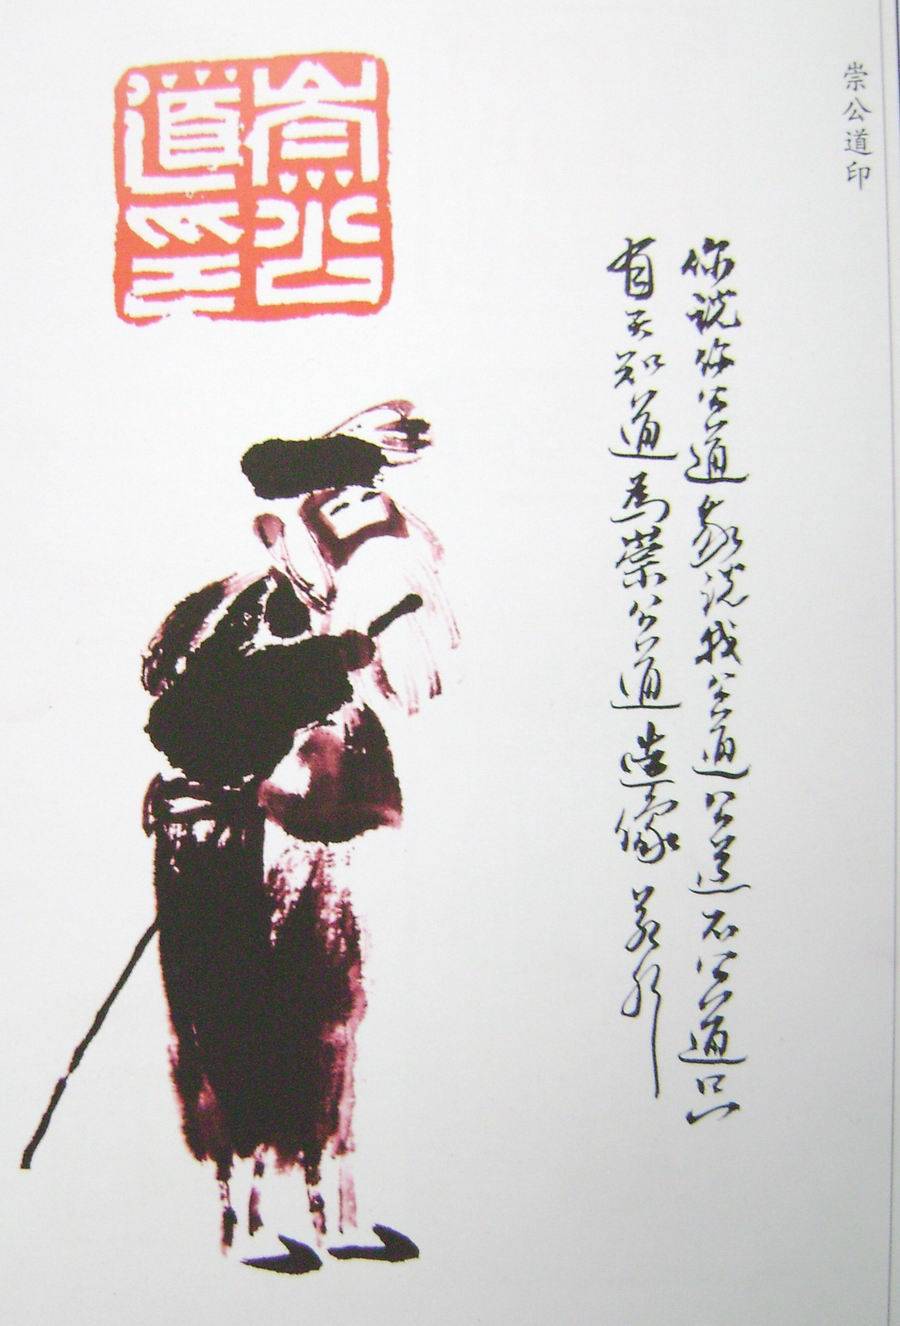 崇公道印
你说你公道我说我公道公道不公道只
有天知道為崇公道造像
崇公道印